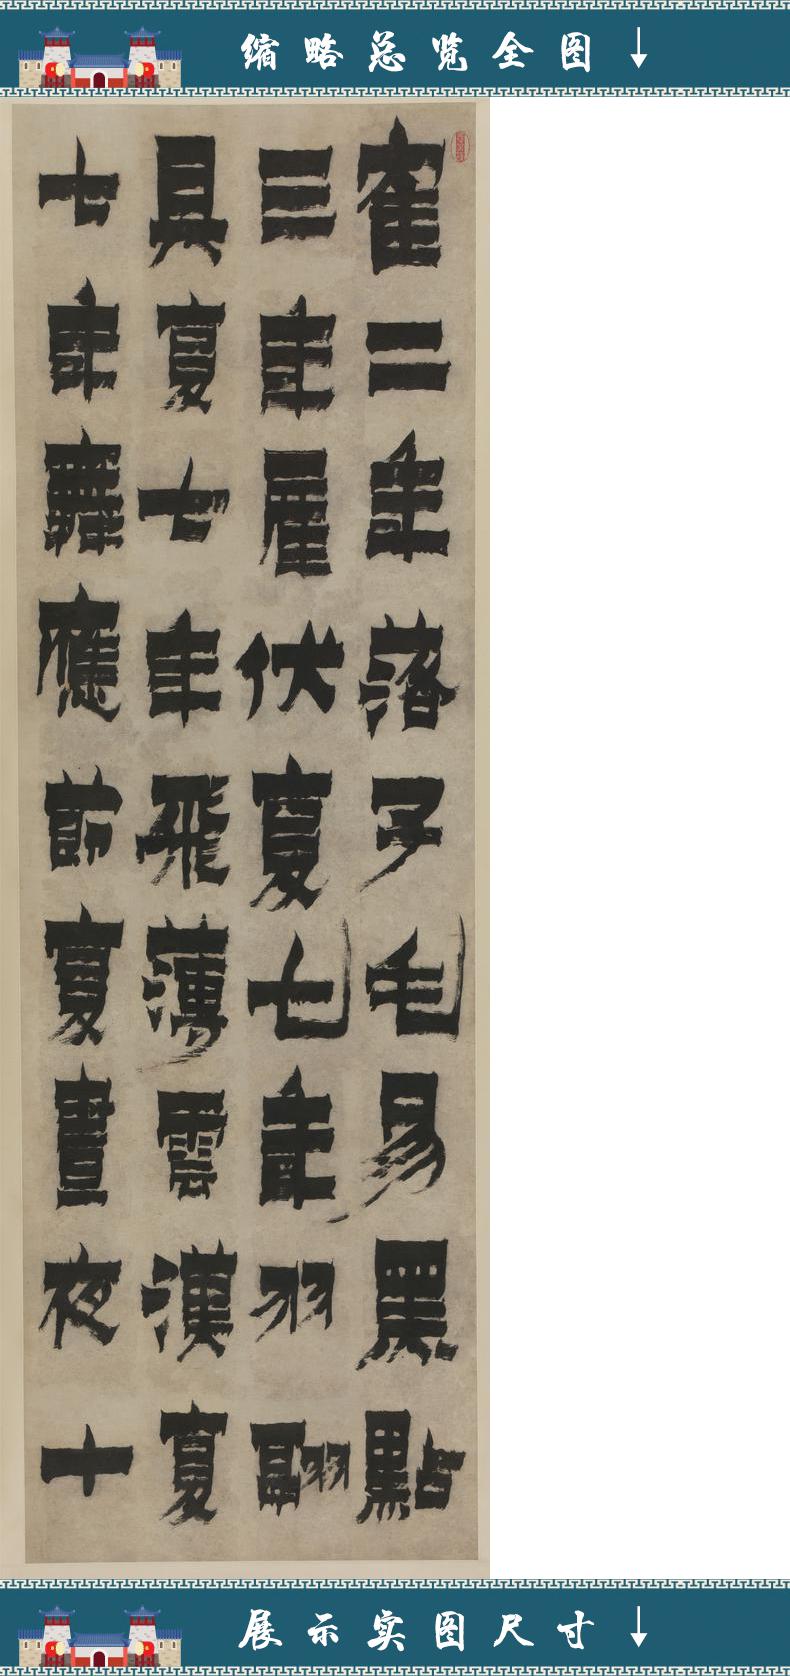 缩略总览全图↓
寉二年落子毛易黑點
三年產伏复七年羽翮
具复七年飛薄雲漢复
七年舞應節复晝夜十
展示实图尺寸↓